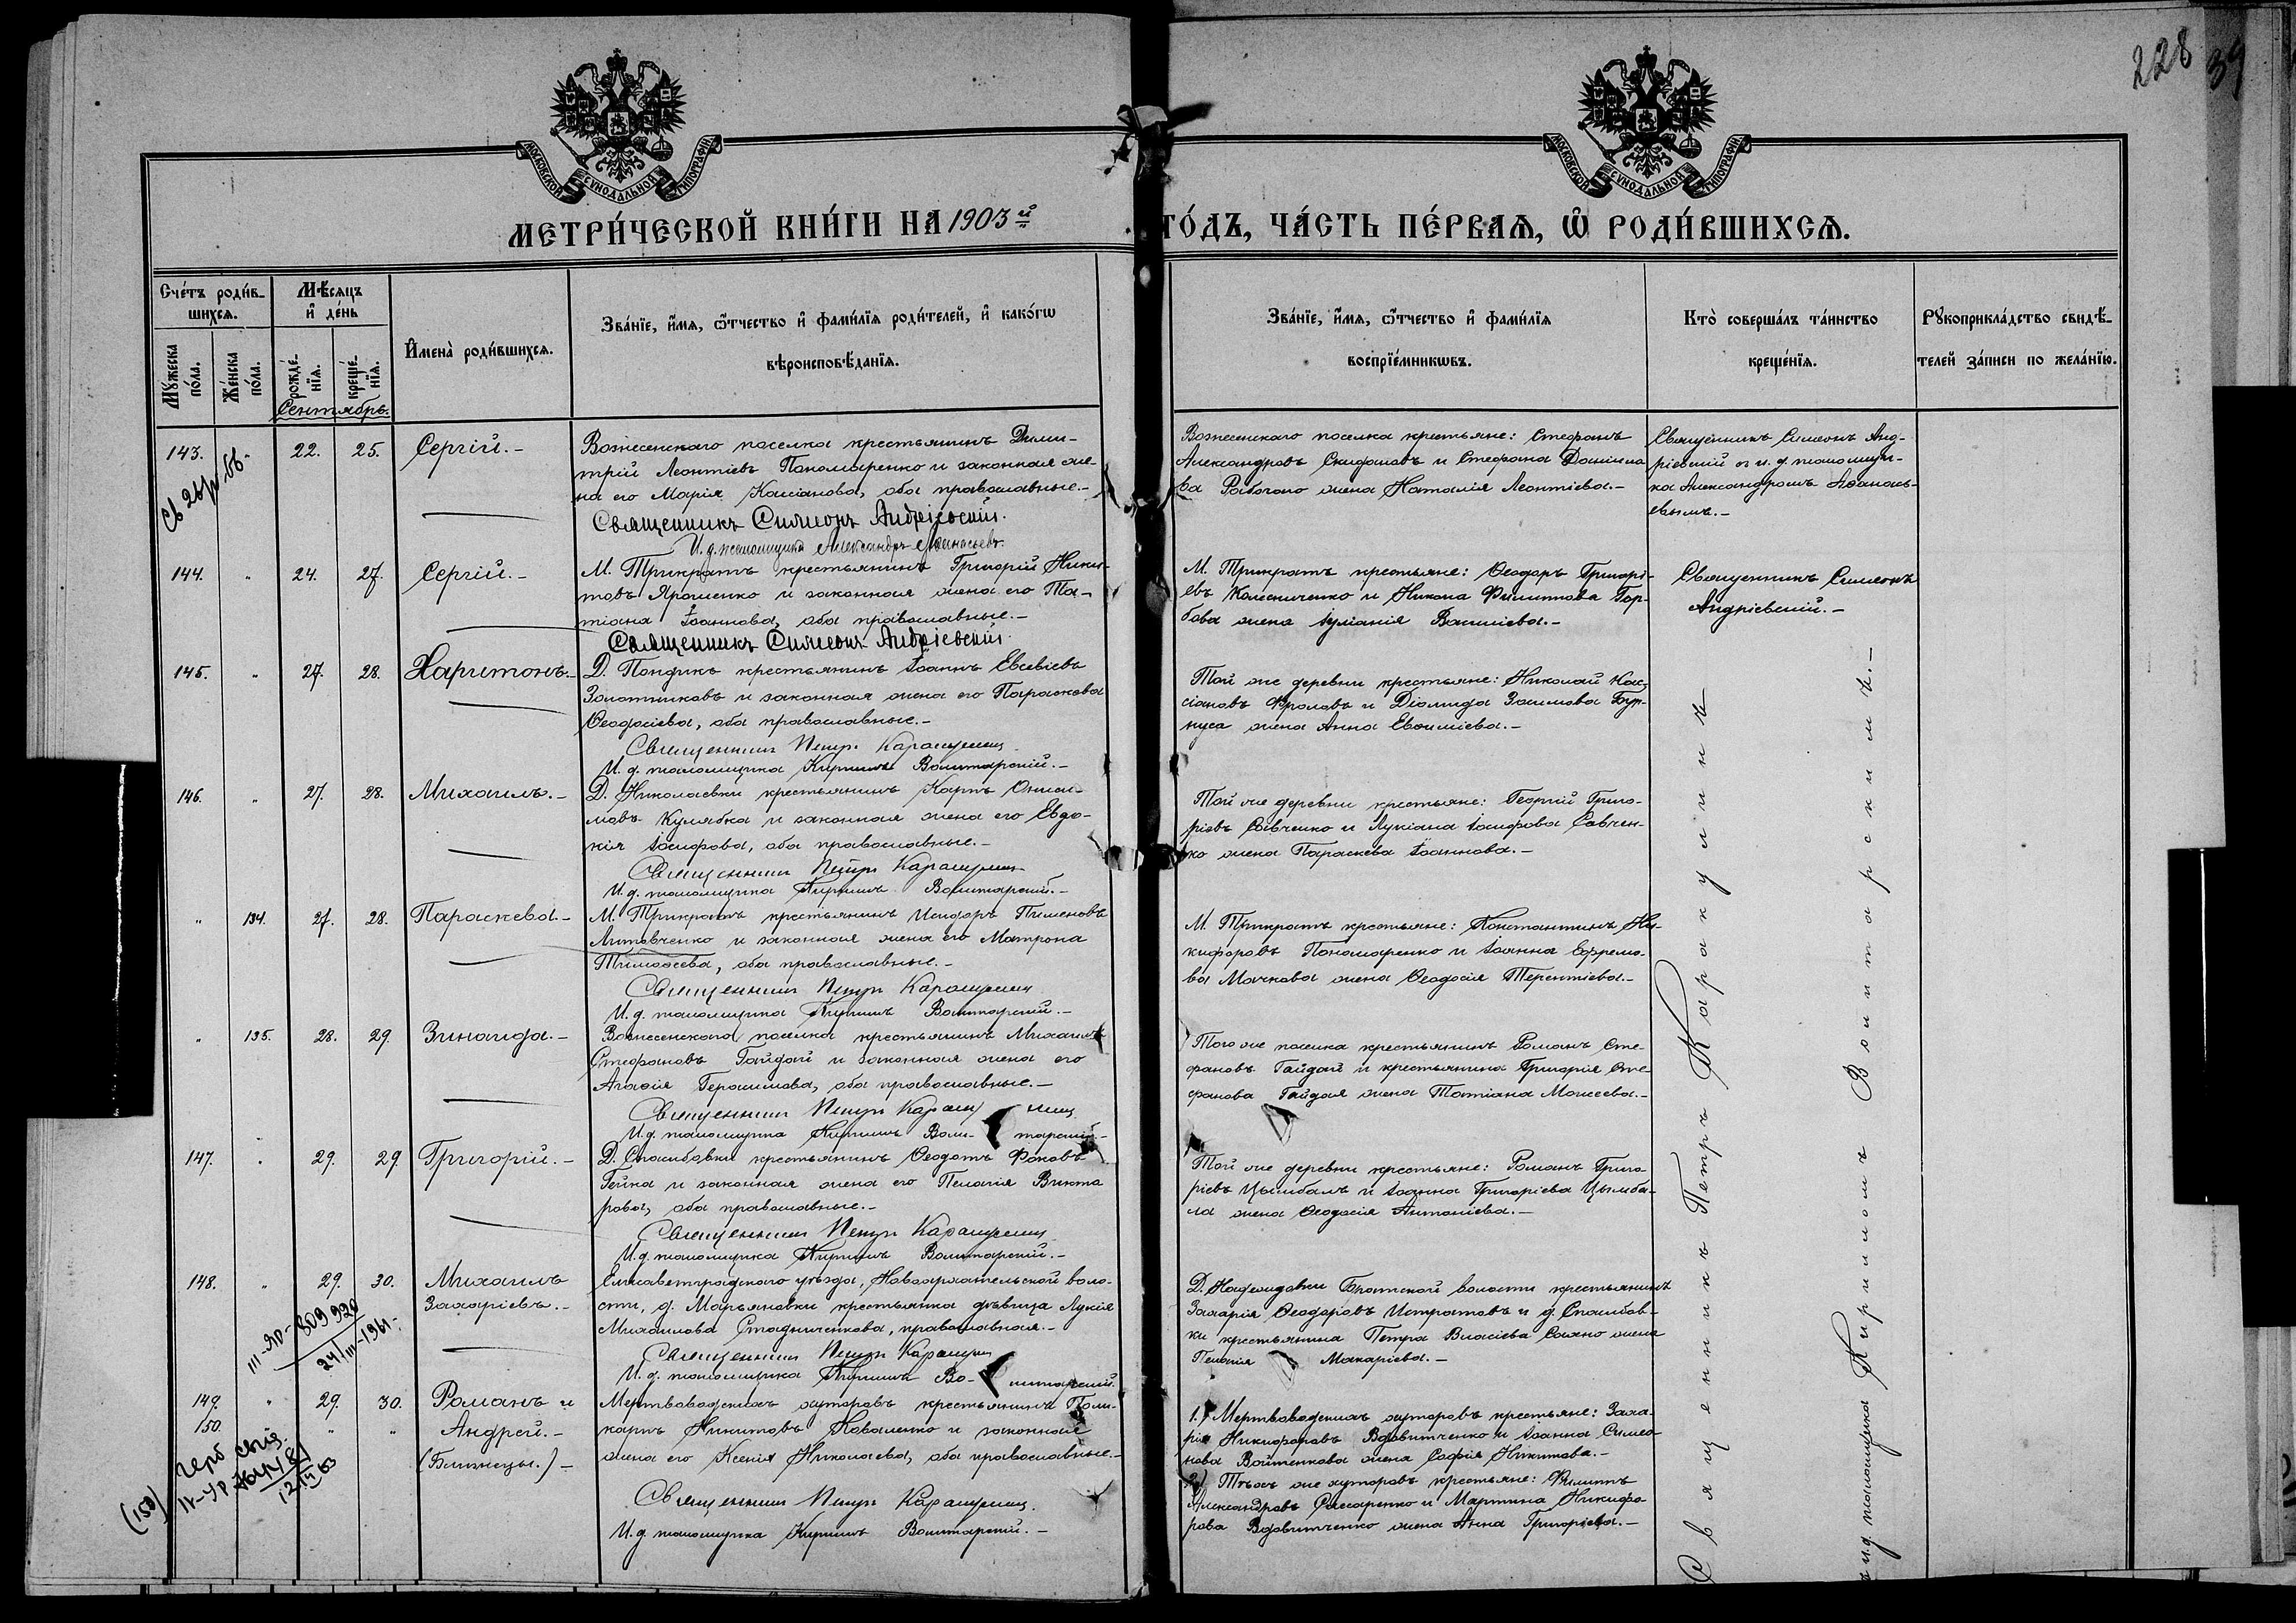 228
39
МОСКОВСКОЙ СѴНОДАЛЬНОЙ ТИПОГРАФІИ
МОСКОВСКОЙ СѴНОДАЛЬНОЙ ТИПОГРАФІИ
МЕТРИ́ЧЕСКОЙ КНИ́ГИ НА 1903й
ГО́ДЪ, ЧА́СТЬ ПЕ́РВАѦ, Ѡ҆ РОДИ́ВШИХСѦ.
Сче́тъ роди́в-
шихсѧ.
Мꙋ́жеска по́ла.
Же́нска по́ла.
Мѣ́сѧцъ
и҆ де́нь
рожде́-нїѧ.
креще́-нїѧ.
Сентябрь.
И҆мена̀ роди́вшихсѧ.
Зва́нїе, и҆́мѧ, ѻ҆́тчество и҆ фами́лїѧ роди́телей, и҆ како́гѡ
вѣроисповѣ́данїѧ.
Зва́нїе, и҆́мѧ, ѻ҆́тчество и҆ фами́лїѧ
воспрїе́мникѡвъ.
Кто̀ соверша́лъ та́инство
креще́нїѧ.
Рꙋкоприкла́дство свидѣ́-
телей за́писи по жела́нїю.
143. 22. 25. Сергій.-
Вознесенскаго поселка крестьянинъ Дими-
трій Леонтіевъ Пономаренко и законная же-
на его Марія Касіанова, оба православные.-
Священникъ Симеонъ Андріевскій.
И. д. псаломщика Александръ Аѳанасьевъ.
Вознесенскаго поселка крестьяне: Стефанъ
Александровъ и Стефана
жена Наталія Леонтіева.-
Священникъ Симеонъ Анд-
ріевскій съ и. д. псаломщи-
ка Александромъ Аѳанась-
евымъ.-
144. " 24. 27. Сергій.-
М. Трикратъ крестьянинъ Григорій Ники-
товъ Ярошенко и законная жена его Та-
тіана Іоаннова, оба православные.-
Священникъ Симеонъ Андріевскій.
М. Трикратъ крестьяне: Ѳеодоръ Григорі-
евъ Колесниченко и Никона Филиппова Гор-
бова жена Іуліанія Василіева.-
Священникъ Симеонъ
Андріевскій.-
145. " 27. 28. Харитонъ.-
Д. крестьянинъ Іоаннъ Евсевіевъ
Золотниковъ и законная жена его Параскева
Ѳеодосіева, оба православные.-
Священникъ Петръ Каракулинъ
И. д. псаломщика Кириллъ Воитарскій.-
Той же деревни крестьяне: Николай Кас-
сіановъ Фроловъ и Діомида Зосимова
жена Анна Евѳиміева.-
146. " 27. 28. Михаилъ.-
Д. Николаевки крестьянинъ Карпъ Ониси-
мовъ Кулябка и законная жена его Евдо-
кія Іосифова, оба православные.-
Священникъ Петръ Каракулинъ
И. д. псаломщика Кириллъ Воитарскій.-
Той же деревни крестьяне: Георгій Григо-
ріевъ Савченко и Лукіана Іосифова Савчен-
ко жена Параскева Іоаннова.-
" 134. 27. 28. Параскева.-
М. Трикратъ крестьянинъ Исидоръ Пименовъ
Литовченко и законная жена его Матрона
Тимоѳеева, оба православные.-
Священникъ Петръ Каракулинъ
И. д. псаломщика Кириллъ Воитарскій.-
М. Трикратъ крестьяне: Константинъ Ни-
кифоровъ Пономаренко и Іоанна Ефремо-
ва Мачкова жена Ѳеодосія Терентіева.-
" 135. 28. 29. Зинаида.-
Вознесенскаго поселка крестьянинъ Михаилъ
Стефановъ Гайдай и законная жена его
Агаѳія Герасимова, оба православные.-
Священникъ Петръ Каракулинъ
И. д. псаломщика Кириллъ Вои-тарскій.-
Того же поселка крестьянинъ Романъ Сте-
фановъ Гайдай и крестьянина Григорія Сте-
фанова Гайдая жена Татіана Моисеева.-
147. " 29. 29. Григорій.-
Д. Спасибовки крестьянинъ Ѳеодотъ Фоковъ
Гейка и законная жена его Пелагія Викто
рова, оба православные.-
Священникъ Петръ Каракулинъ
И. д. псаломщика Кириллъ Воитарскій.-
Той же деревни крестьяне: Романъ Григо-
ріевъ Цымбалъ и Іоанна Григоріева Цымба-
ла жена Ѳеодосія Антоніева.-
148. " 29. 30. Михаилъ
Захаріевъ.-
Елисаветградскаго уѣзда, Новоархангельской воло-
сти, д. Марьяновки крестьянка дѣвица Лукія
Михаилова Стадниченкова, православная.-
Священникъ Петръ Каракулинъ
И. д. псаломщика Кириллъ Во-итарскій.
Д. Братской волости крестьянинъ
Захарія Ѳеодоровъ Истратовъ и д. Спасибов-
ки крестьянина Петра Власіева жена
Пелагія Макаріева.-
III-ЯР- 809920
24/III-1961.
149. " 29. 30. Романъ и
150. " " Андрей.-
(Близнецы.)-
Мертвоводскихъ хуторовъ крестьянинъ Поли-
карпъ Никитовъ Коваленко и законная
жена его Ксенія Николаева, оба православные.-
Священникъ Петръ Каракулинъ.
И. д. псаломщика Кириллъ Воитарскій.-
1.) Мертвоводскихъ хуторовъ крестьяне: Заха-
рія Никифоровъ Вдовитченко и Іоанна Симео-
нова Войтенкова жена Софія Никитова.-
2.) Тѣхъ же хуторовъ крестьяне: Филиппъ
Александровъ и Мартина Никифо-
рова Вдовитченко жена Анна Григоріева.-
(150)
Священникъ Петръ Каракулинъ
и. д. псаломщика Кирилломъ Воитарскимъ.-